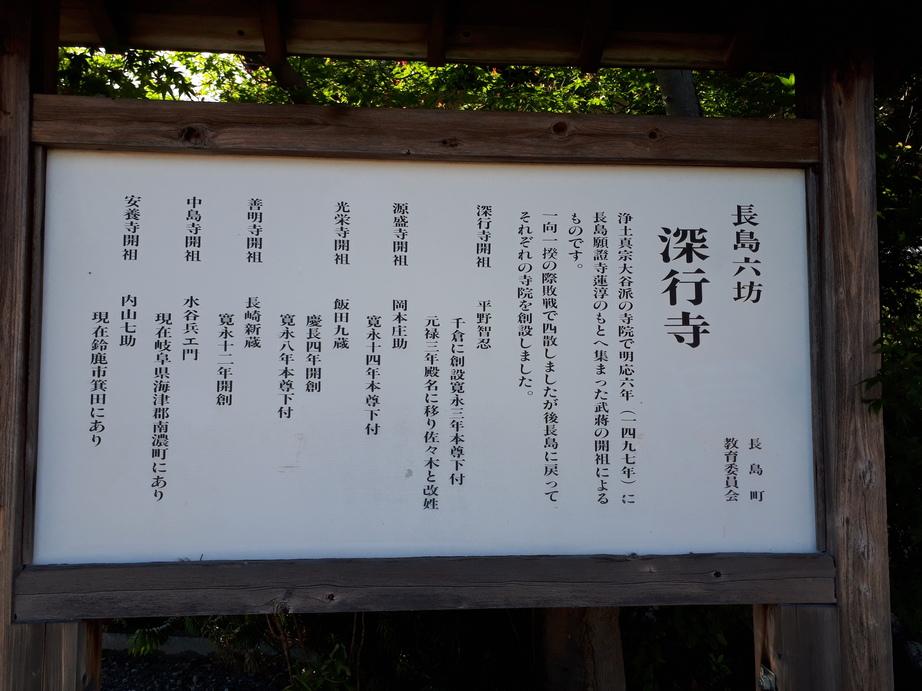 長島六坊
深行寺
長島町
教育委員会
浄土真宗大谷派の寺院で明応六年（一四九七年）に
長島願證寺蓮淳のもとへ集まった武蒋の開祖による
ものです。
一向一揆の際敗戦で四散しましたが後長島に戻って
それぞれの寺院を創設しました。
深行寺開祖　平野智忍
千倉に創設寛永三年本尊下付
元禄三年殿名に移り佐々木と改姓
源盛寺開祖　岡本庄助
寛永十四年本尊下付
光栄寺開祖　飯田九蔵
慶長四年開創
寛永八年本尊下付
善明寺開祖　長崎新蔵
寛永十二年開創
中島寺開祖　水谷兵エ門
現在岐阜県海津郡南濃町にあり
安養寺開祖　内山七助
現在鈴鹿市箕田にあり